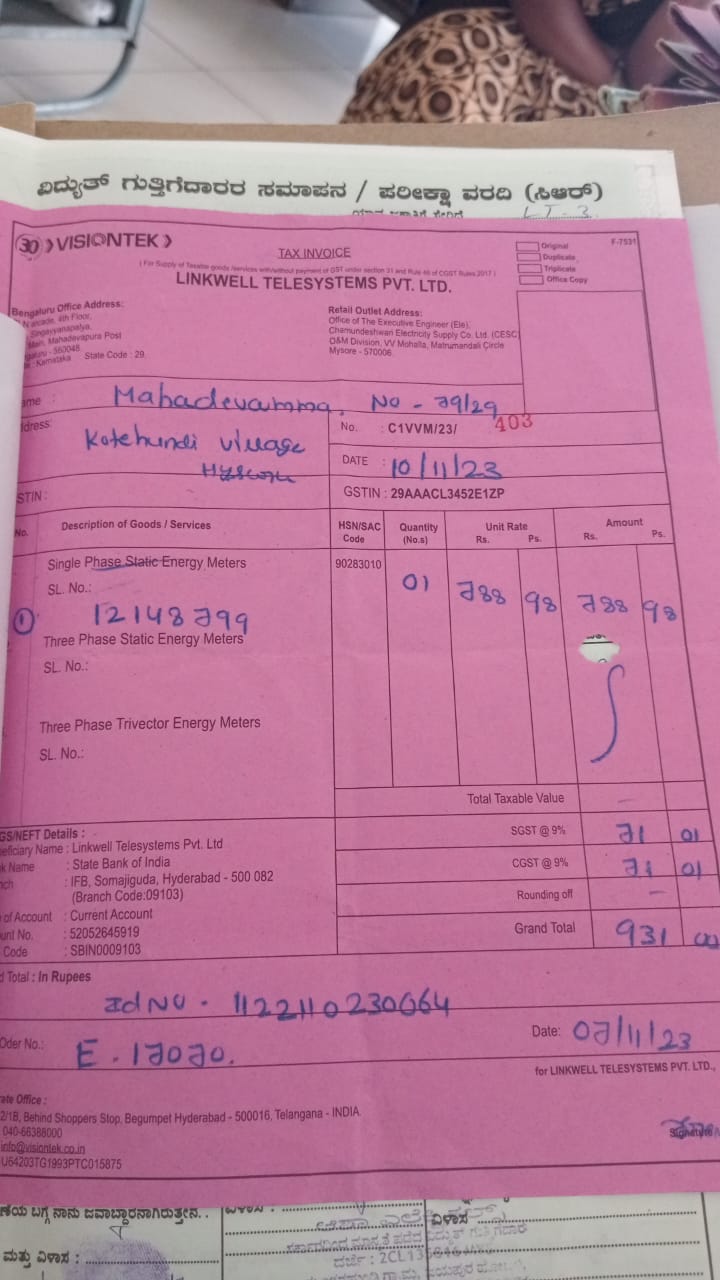 ವಿದ್ಯುತ್ ಗುತ್ತಿಗೆದಾರರ ಸಮಾಪನ / ಪರೀಕ್ಷಾ ವರದಿ (ಸಿಆರ್)
LT-3
30 VISIONTEK
TAX INVOICE
( For Supply of Taxable goods /services with/without payment of GST under section 31 and Rule 46 of CGST Rules 2017 )
LINKWELL TELESYSTEMS PVT. LTD.
F-7531
Original
Duplicate
Triplicate
Office Copy
Bengaluru Office Address:
arcade, 4th Floor,
Singayyanapalya,
Main, Mahadevapura Post
- 560048.
: Karnataka State Code : 29.
Retail Outlet Address:
Office of The Executive Engineer (Ele),
Chamundeshwari Electricity Supply Co. Ltd. (CESC)
O&M Division, VV Mohalla, Matrumandali Circle
Mysore - 570006.
ame : Mahadevamma. No - 79/29
dress: Kotehundi village
No. : C1VVM/23/ 403
DATE : 10/11/23
STIN :
GSTIN : 29AAACL3452E1ZP
No. Description of Goods / Services HSN/SAC Code Quantity (No.s) Unit Rate Rs. Ps. Amount Rs. Ps.
Single Phase Static Energy Meters 90283010 01 788 98 788 98
SL. No.:
① 12148799
Three Phase Static Energy Meters
SL. No.:
Three Phase Trivector Energy Meters
SL. No.:
Total Taxable Value –
SGST @ 9% 71 01
CGST @ 9% 71 01
Rounding off –
Grand Total 931 00
GS/NEFT Details :
eficiary Name : Linkwell Telesystems Pvt. Ltd
k Name : State Bank of India
nch : IFB, Somajiguda, Hyderabad - 500 082
(Branch Code:09103)
of Account : Current Account
unt No. : 52052645919
Code : SBIN0009103
d Total : In Rupees
Id No. 1122110230664
Oder No.: E. 17070.
Date: 07/11/23
for LINKWELL TELESYSTEMS PVT. LTD.,
ate Office :
2/1B, Behind Shoppers Stop, Begumpet Hyderabad - 500016, Telangana - INDIA.
040-66388000
info@visiontek.co.in
U64203TG1993PTC015875
Signature
ಬಗ್ಗೆ ನಾನು ಜವಾಬ್ದಾರನಾಗಿರುತ್ತೇನೆ.
ವಿಳಾಸ :
ವಿಳಾಸ
ಮತ್ತು ವಿಳಾಸ :